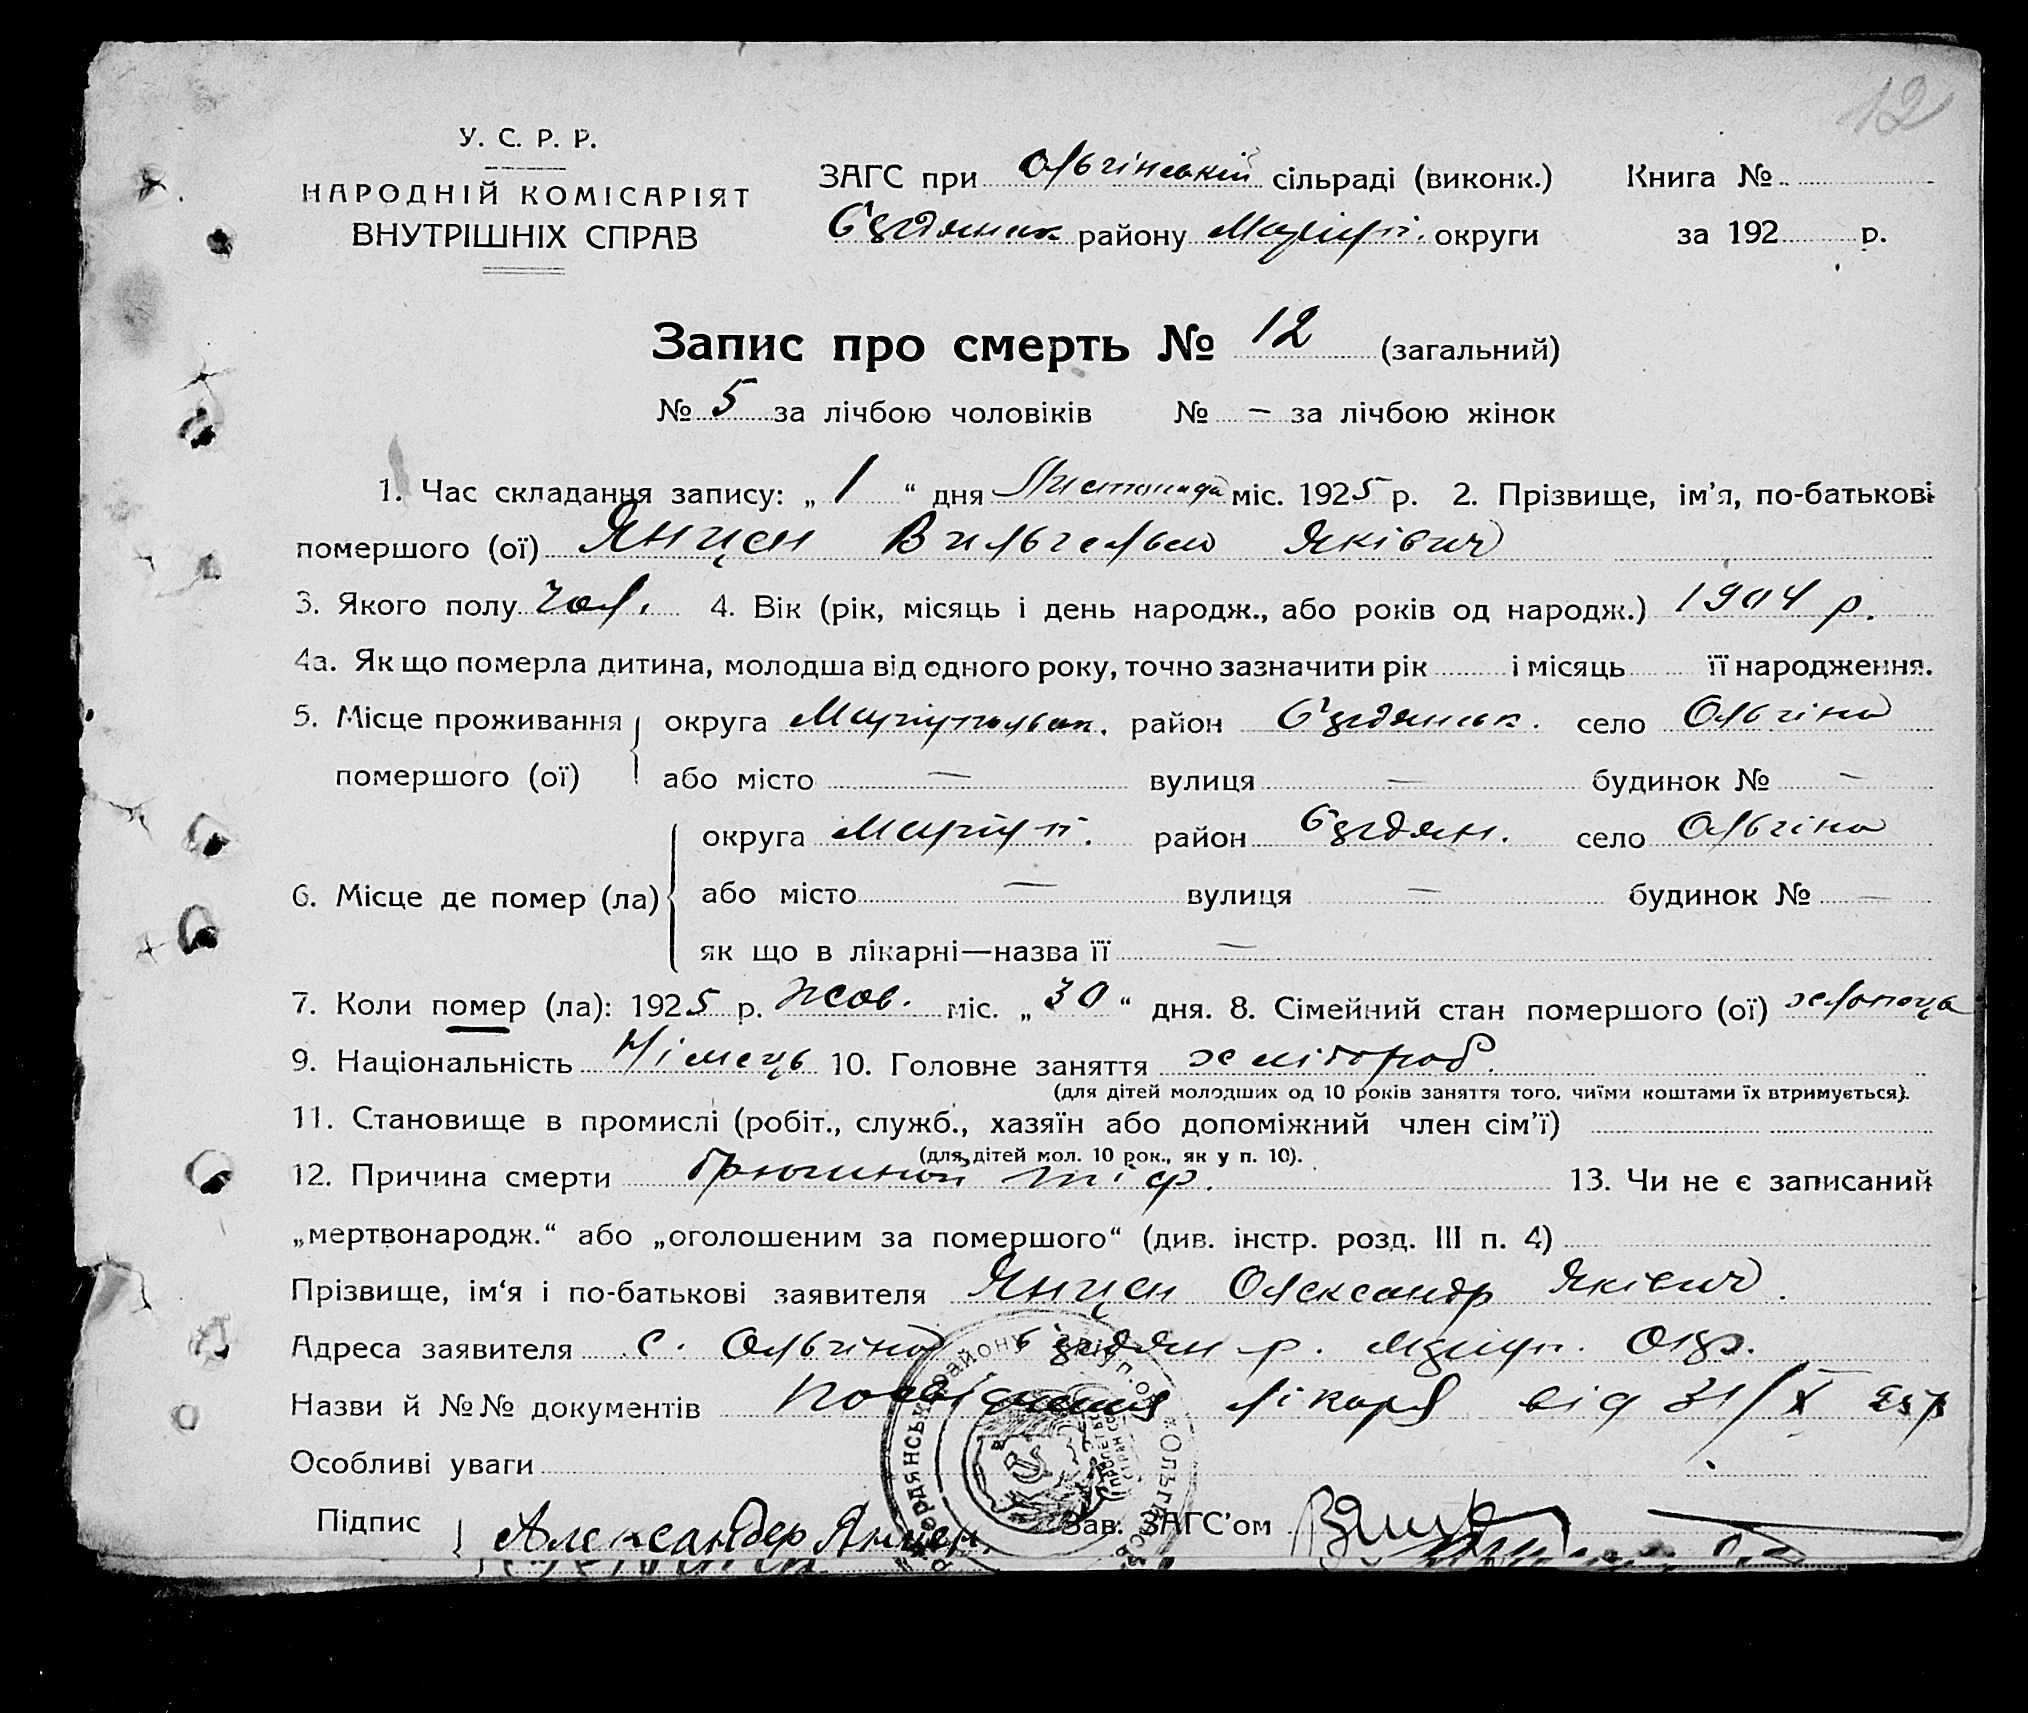 12
У. С. Р. Р.
НАРОДНІЙ КОМІСАРІЯТ
ВНУТРІШНІХ СПРАВ
ЗАГС при Ольгінській сільраді (виконк.) Книга №
району Маріуп. округи за 192 р.
Запис про смерть № 12 (загальний)
№ 5 за лічбою чоловіків № — за лічбою жінок
1. Час складання запису: „ 1 “ дня Листопада міс. 1925 р. 2. Прізвище, ім’я, по-батькові
помершого (ої) Янцен Вильгельм Яківич
3. Якого полу чол. 4. Вік (рік, місяць і день народж., або років од народж.) 1904 р.
4а. Як що померла дитина, молодша від одного року, точно зазначити рік і місяць її народження.
5. Місце проживання округа Маріупольськ. район село Ольгіно
помершого (ої) або місто — вулиця — будинок № —
округа Маріуп. район село Ольгіно
6. Місце де помер (ла) або місто — вулиця — будинок № —
як що в лікарні—назва її —
7. Коли помер (ла): 1925 р. Жов. міс. „ 30 “ дня. 8. Сімейний стан помершого (ої)
9. Національність Німець 10. Головне заняття хлібороб.
(для дітей молодших од 10 років заняття того, чиїми коштами їх втримується).
11. Становище в промислі (робіт., служб., хазяїн або допоміжний член сім’ї)
(для дітей мол. 10 рок., як у п. 10).
12. Причина смерти брюшной тіф. 13. Чи не є записаний
„мертвонародж.“ або „оголошеним за помершого“ (див. інстр. розд. III п. 4)
Прізвище, ім‘я і по-батькові заявителя Янцен Олександр Яківич.
Адреса заявителя с. Ольгіно р. окр.
Назви й №№ документів лікаря від 31/X 25 р
Особливі уваги
Підпис Александер Янцен. Зав. ЗАГС’ом